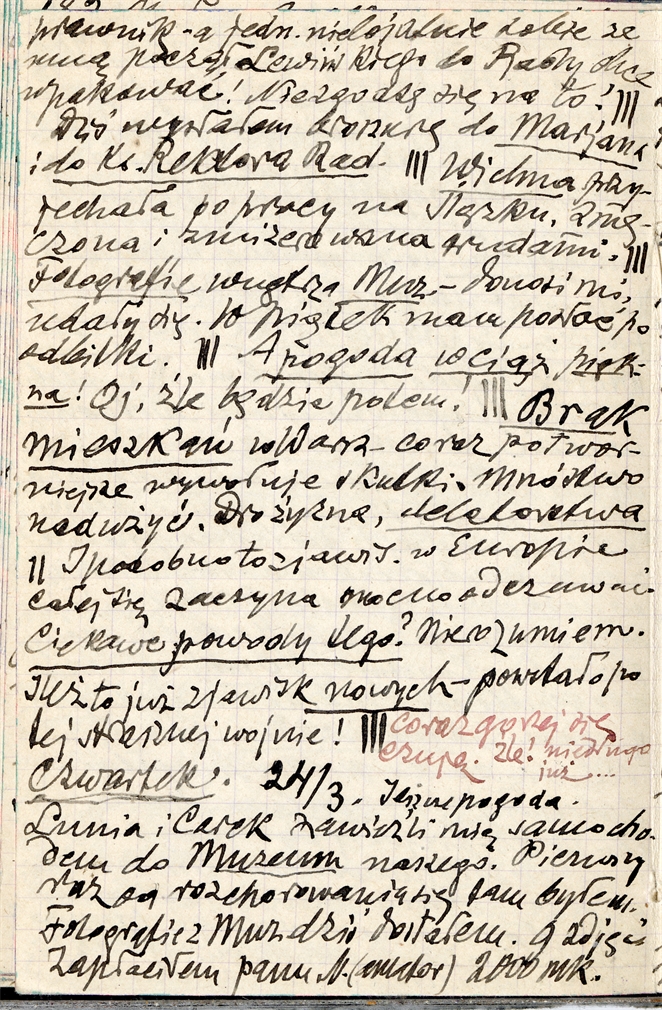 prawnik - a jedn. nielojalnie także ze
mną począł Lewińskiego do Rady chce
wpakować! Nie zgodzę się na to! |||
Dziś wysłałem broszurę do Marjana
i do Ks. Rektora Rad. ||| Wichna przy-
jechała po pracy na Śląsku, zmę-
czona i zmizerowana trudami. |||
Fotografie wnętrza Muz. - donosi mi,
udały się. W piątek mam posłać po
odbitki. ||| A pogoda wciąż pięk-
na! Oj, źle będzie potem! ||| Brak
mieszkań w Warsz - coraz potwor-
niejsze wywołuje skutki. Mnóstwo
nadużyć. Drożyzna, delatorstwa
|| I podobno to zjawis. w Europie
całej się zaczyna mocno odczuwać.
Ciekawe powody tego? Nie rozumiem.
Ileż to już zjawisk nowych - powstało po
tej strasznej wojnie! ||| coraz gorzej się
czuję. Źle! niedługo
już ...
Czwartek. 24/3. Jeszcze pogoda.
Lunia i Carek zawieźli mię samocho-
dem do Muzeum naszego. Pierwszy
raz od rozchorowania się tam byłem.
Fotografie z Muz. dziś dostałem. 9 zdjęć
Zapłaciłem panu N. (amator) 2000 mk.